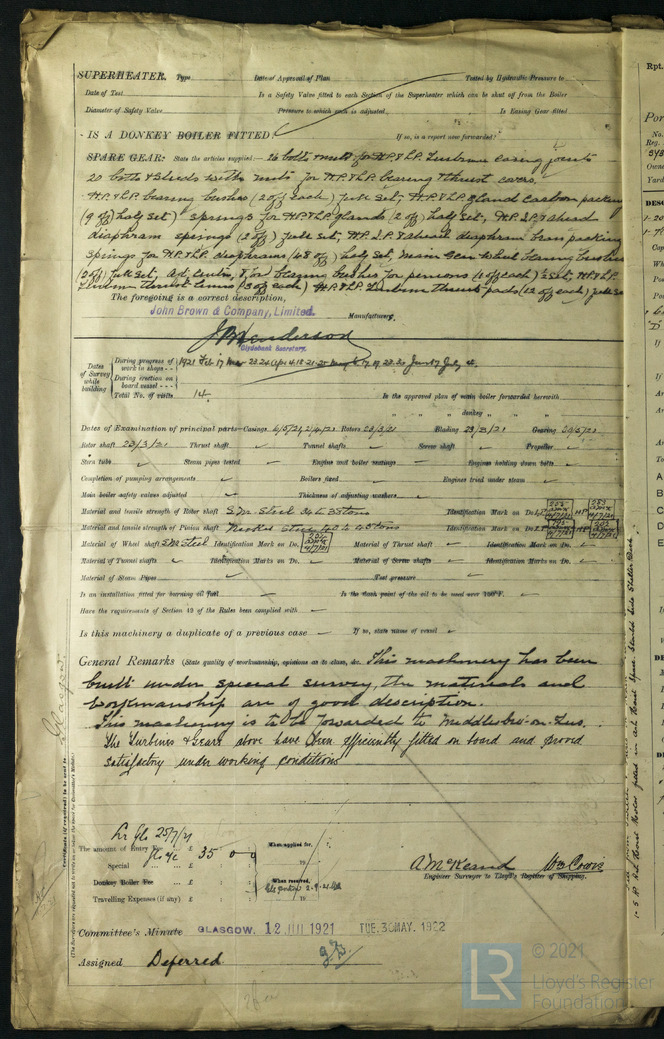 SUPERHEATER. Type Date of Approval of Plan Tested by Hydraulic Pressure to
Date of Test Is a Safety Valve fitted to each Section of the Superheater which can be shut off from the Boiler
Diameter of Safety Valve Pressure to which each is adjusted Is Easing Gear fitted
IS A DONKEY BOILER FITTED? If so, is a report now forwarded?
SPARE GEAR: State the articles supplied:— 26 bolts & nuts for H.P. & L.P. Turbine casing joints
20 bolts & studs with nuts for H.P. & L.P. bearing & thrust covers.
H.P. & L.P. bearing bushes (2 off each) full set, H.P. & L.P. gland carbon packing
(9 off) half set) springs for H.P. & L.P. glands (2 off) half set, H.P. I.P. & ahead
diaphram springs (2 off) full set, H.P. I.P. & ahead diaphram brass packing
springs for H.P. & L.P. diaphrams (48 off) half set, Main Gear Wheel bearing bushes
(2 off) full set, bearing bushes for penions (1 off each) set, H.P. & L.P.
Turbine thrust (3 off each) H.P. & L.P. Turbine thrust pads (12 off each) full set
The foregoing is a correct description,
John Brown & Company, Limited. Manufacturers.
J Henderson
Clydebank Secretary.
Dates of Survey while building
During progress of work in shops - - 1921 Feb 17 Mar 23.24 Apr 4.18.21.25 17.19.23.20 Jun 17 July 4.
During erection on board vessel - - -
Total No. of visits 14. Is the approved plan of main boiler forwarded herewith
" " " donkey " " "
Dates of Examination of principal parts—Casings 6/5/21, 21/4/21 Rotors 23/3/21 Blading 23/3/21 Gearing 20/5/21
Rotor shaft 23/3/21 Thrust shaft Tunnel shafts Screw shaft Propeller
Stern tube Steam pipes tested Engine and boiler seatings Engines holding down bolts
Completion of pumping arrangements Boilers fixed Engines tried under steam
Main boiler safety valves adjusted Thickness of adjusting washers
Material and tensile strength of Rotor shaft S.M. Steel 34 to 38 tons Identification Mark on Do.
Material and tensile strength of Pinion shaft Nickel Steel 40 to 45 tons Identification Mark on Do.
Material of Wheel shaft S.M. Steel Identification Mark on Do. Material of Thrust shaft Identification Mark on Do.
Material of Tunnel shafts Identification Marks on Do. Material of Screw shafts Identification Marks on Do.
Material of Steam Pipes Test pressure
Is an installation fitted for burning oil fuel Is the flash point of the oil to be used over 150°F.
Have the requirements of Section 49 of the Rules been complied with
Is this machinery a duplicate of a previous case If so, state name of vessel
General Remarks (State quality of workmanship, opinions as to class, &c. This machinery has been
built under special survey, the materials and
workmanship are of good description.
This machinery is to be forwarded to Middlesbro-on-Tees.
The Turbines & Gears above have been efficiently fitted on board and proved
satisfactory under working conditions
Glasgow.
The amount of Entry Fee £
Special £ 35 0 0
Donkey Boiler Fee £
Travelling Expenses (if any) £
When applied for,
When received,
A McKeand
Engineer Surveyor to Lloyd's Register of Shipping.
Committee's Minute GLASGOW. 12 JUL 1921 TUE. 30 MAY. 1922
Assigned Deferred
© 2021
LR
Lloyd's Register
Foundation
Rpt.